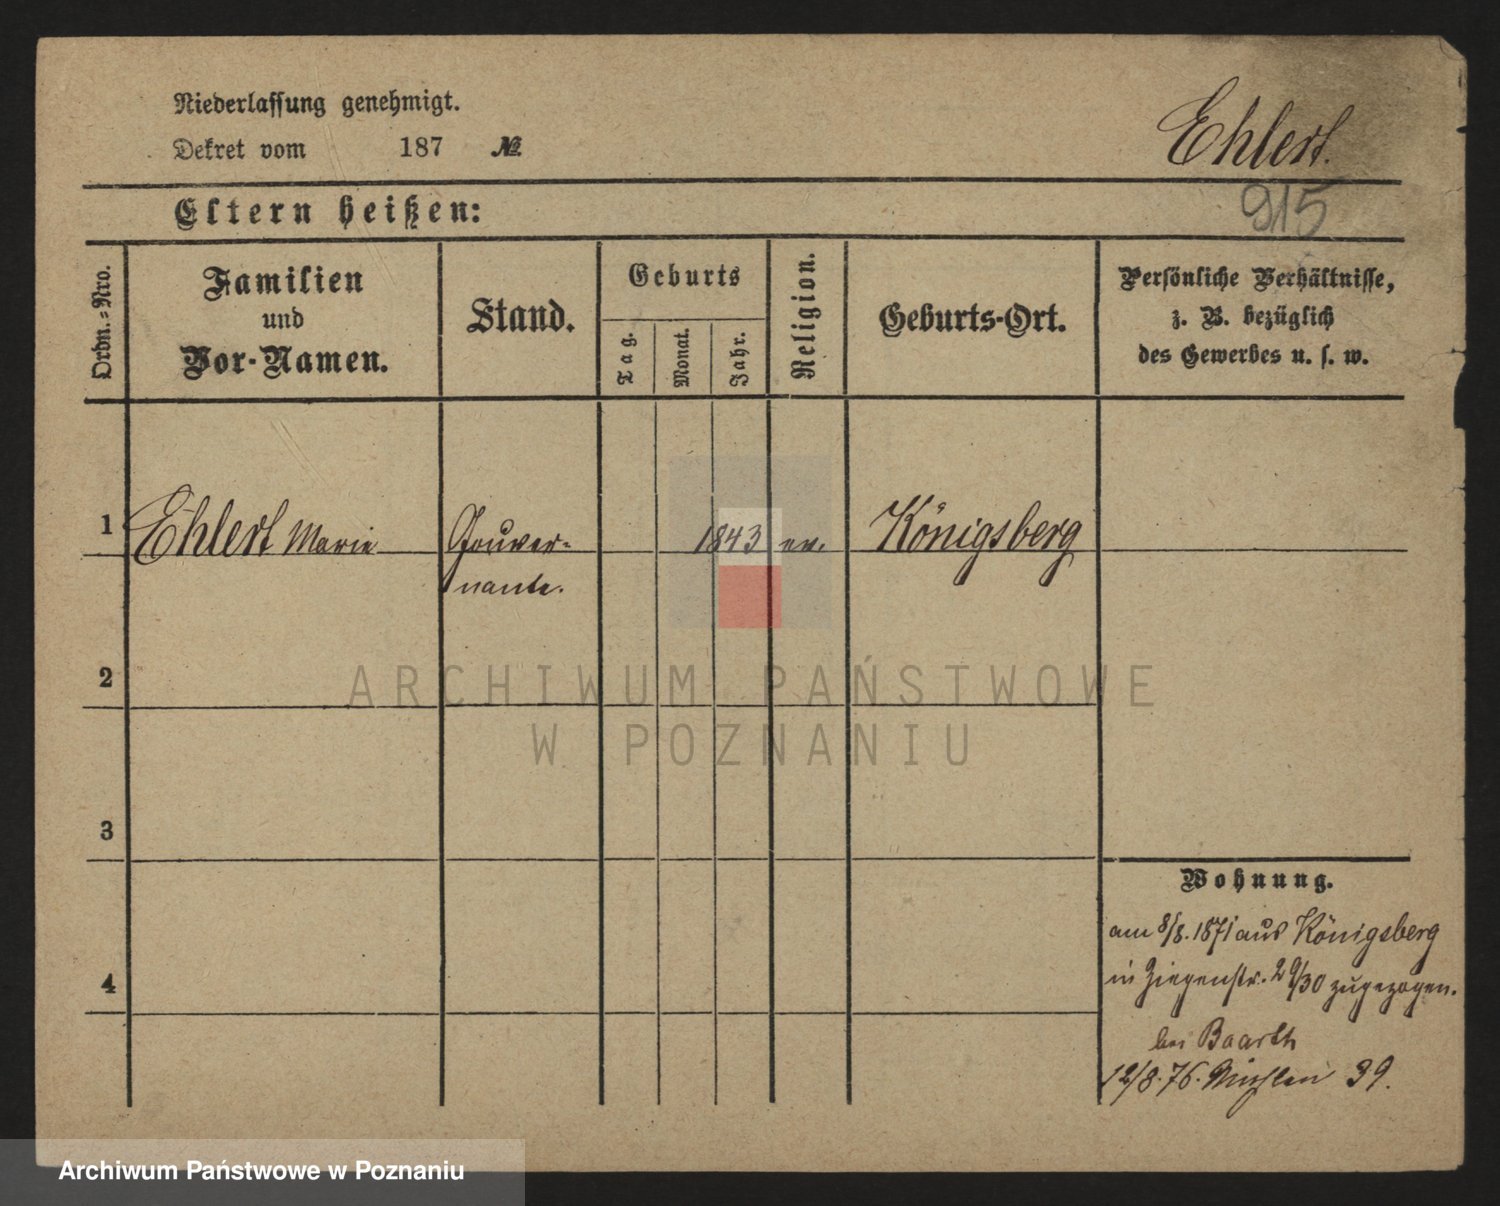 Niederlassung genehmigt.
Dekret vom 187 №
Ehlert.
915
Eltern heißen:
Ordn.-Nro.
Familien
und
Vor-Namen.
Stand.
Geburts
Tag.
Monat.
Jahr.
Religion.
Geburts-Ort.
Persönliche Verhältnisse,
z. B. bezüglich
des Gewerbes u. s. w.
1 Ehlert Marie Gouver- 1843 ev. Königsberg
nante.
2
3
4
Wohnung.
am 8/8. 1871 aus Königsberg
in Ziegenstr. 29/30 zugezogen.
bei Baarth
12/8. 76. Mühlen 39.
ARCHIWUM PAŃSTWOWE
W POZNANIU
Archiwum Państwowe w Poznaniu